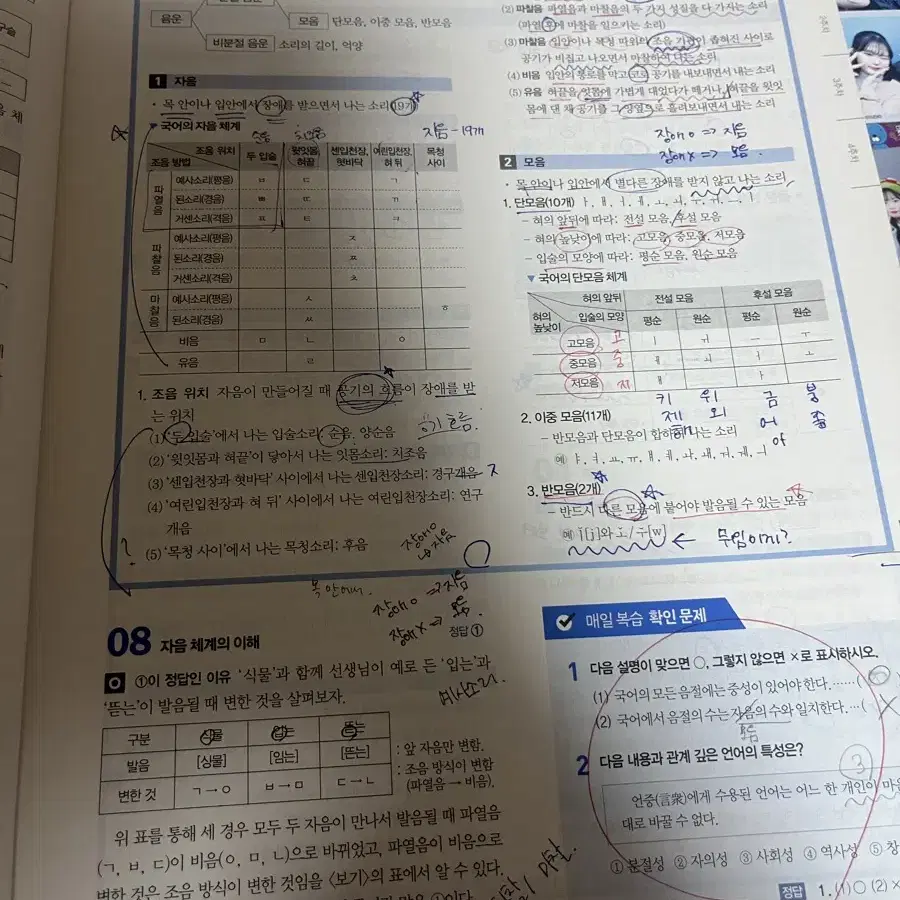 음운
모음 단모음, 이중 모음, 반모음
비분절 음운 소리의 길이, 억양
1 자음
• 목 안이나 입안에서 장애를 받으면서 나는 소리(19개)
▼ 국어의 자음 체계
자음 - 19개
조음 위치
조음 방법
두 입술
윗잇몸, 혀끝
센입천장, 혓바닥
여린입천장, 혀 뒤
목청 사이
파열음
예사소리(평음) ㅂ ㄷ ㄱ
된소리(경음) ㅃ ㄸ ㄲ
거센소리(격음) ㅍ ㅌ ㅋ
파찰음
예사소리(평음) ㅈ
된소리(경음) ㅉ
거센소리(격음) ㅊ
마찰음
예사소리(평음) ㅅ
ㅎ
된소리(경음) ㅆ
비음 ㅁ ㄴ ㅇ
유음 ㄹ
1. 조음 위치 자음이 만들어질 때 공기의 흐름이 장애를 받
는 위치
(1) '두 입술'에서 나는 입술소리: 순음, 양순음
(2) '윗잇몸과 혀끝'이 닿아서 나는 잇몸소리: 치조음
(3) '센입천장과 혓바닥' 사이에서 나는 센입천장소리: 경구개음
(4) '여린입천장과 혀 뒤' 사이에서 나는 여린입천장소리: 연구
개음
(5) '목청 사이'에서 나는 목청소리: 후음
장애 O
↳ 자음
목 안에서.
장애 O ⇒ 자음
장애 X ⇒ 모음.
(2) 파찰음 파열음과 마찰음의 두 가지 성질을 다 가지는 소리
(파열 후에 마찰을 일으키는 소리)
(3) 마찰음 입안이나 목청 따위의 조음 기관이 좁혀진 사이로
공기가 비집고 나오면서 마찰하여 나는 소리
(4) 비음 입안의 통로를 막고 코로 공기를 내보내면서 내는 소리
(5) 유음 혀끝을 잇몸에 가볍게 대었다가 떼거나, 혀끝을 윗잇
몸에 댄 채 공기를 그 양옆으로 흘려보내면서 내는 소리
장애 O ⇒ 자음
장애 X ⇒ 모음.
2 모음
• 목 안이나 입안에서 별다른 장애를 받지 않고 나는 소리
1. 단모음(10개) ㅏ, ㅐ, ㅓ, ㅔ, ㅗ, ㅚ, ㅜ, ㅟ, ㅡ, ㅣ
- 혀의 앞뒤에 따라: 전설 모음, 후설 모음
- 혀의 높낮이에 따라: 고모음, 중모음, 저모음
- 입술의 모양에 따라: 평순 모음, 원순 모음
▼ 국어의 단모음 체계
혀의 앞뒤 전설 모음 후설 모음
혀의 높낮이 입술의 모양 평순 원순 평순 원순
고모음 고 ㅣ ㅟ ㅡ ㅜ
중모음 중 ㅔ ㅚ ㅓ ㅗ
저모음 저 ㅐ ㅏ
키 위 금 붕
제 외 어 좀
해 아
2. 이중 모음(11개)
- 반모음과 단모음이 합하여 나는 소리
예 ㅑ, ㅕ, ㅛ, ㅠ, ㅒ, ㅖ, ㅘ, ㅙ, ㅝ, ㅞ, ㅢ
3. 반모음(2개)
- 반드시 다른 모음에 붙어야 발음될 수 있는 모음
예 ĭ[j]와 ŏ/ŭ[w]
← 무엇이지?
08 자음 체계의 이해
정답 ①
①이 정답인 이유 '식물'과 함께 선생님이 예로 든 '입는'과
'뜯는'이 발음될 때 변한 것을 살펴보자.
예사소리.
구분 식물 입는 뜯는
발음 [싱물] [임는] [뜬는]
변한 것 ㄱ→ㅇ ㅂ→ㅁ ㄷ→ㄴ
: 앞 자음만 변함.
: 조음 방식이 변함
(파열음 → 비음).
위 표를 통해 세 경우 모두 두 자음이 만나서 발음될 때 파열음
(ㄱ, ㅂ, ㄷ)이 비음(ㅇ, ㅁ, ㄴ)으로 바뀌었고, 파열음이 비음으로
변한 것은 조음 방식이 변한 것임을 <보기>의 표에서 알 수 있다.
매일 복습 확인 문제
1 다음 설명이 맞으면 ○, 그렇지 않으면 ×로 표시하시오.
(1) 국어의 모든 음절에는 중성이 있어야 한다. ……( ○
(2) 국어에서 음절의 수는 자음의 수와 일치한다. …( ×
모음
2 다음 내용과 관계 깊은 언어의 특성은?
3
언중(言衆)에게 수용된 언어는 어느 한 개인이 마음
대로 바꿀 수 없다.
① 분절성 ② 자의성 ③ 사회성 ④ 역사성 ⑤ 창
정답 1. (1) ○ (2) ×